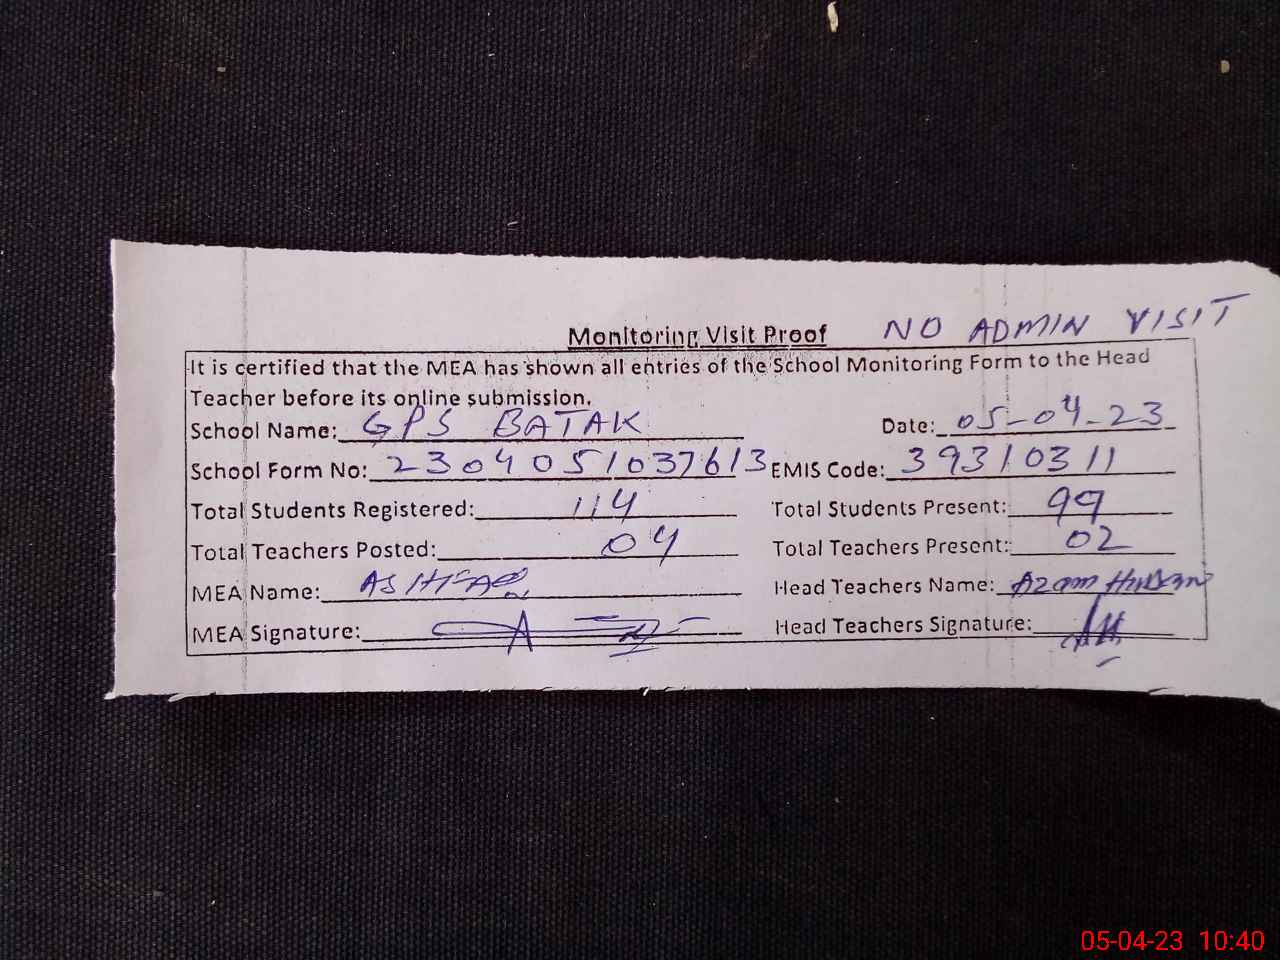 Monitoring Visit Proof NO ADMIN VISIT
It is certified that the MEA has shown all entries of the School Monitoring Form to the Head
Teacher before its online submission.
School Name: GPS BATAK Date: 05-04-23
School Form No: 2304051037613 EMIS Code: 39310311
Total Students Registered: 114 Total Students Present: 99
Total Teachers Posted: 04 Total Teachers Present: 02
MEA Name: ASHFAQ Head Teachers Name: Azam Hussain
MEA Signature: Head Teachers Signature: AH
05-04-23 10:40